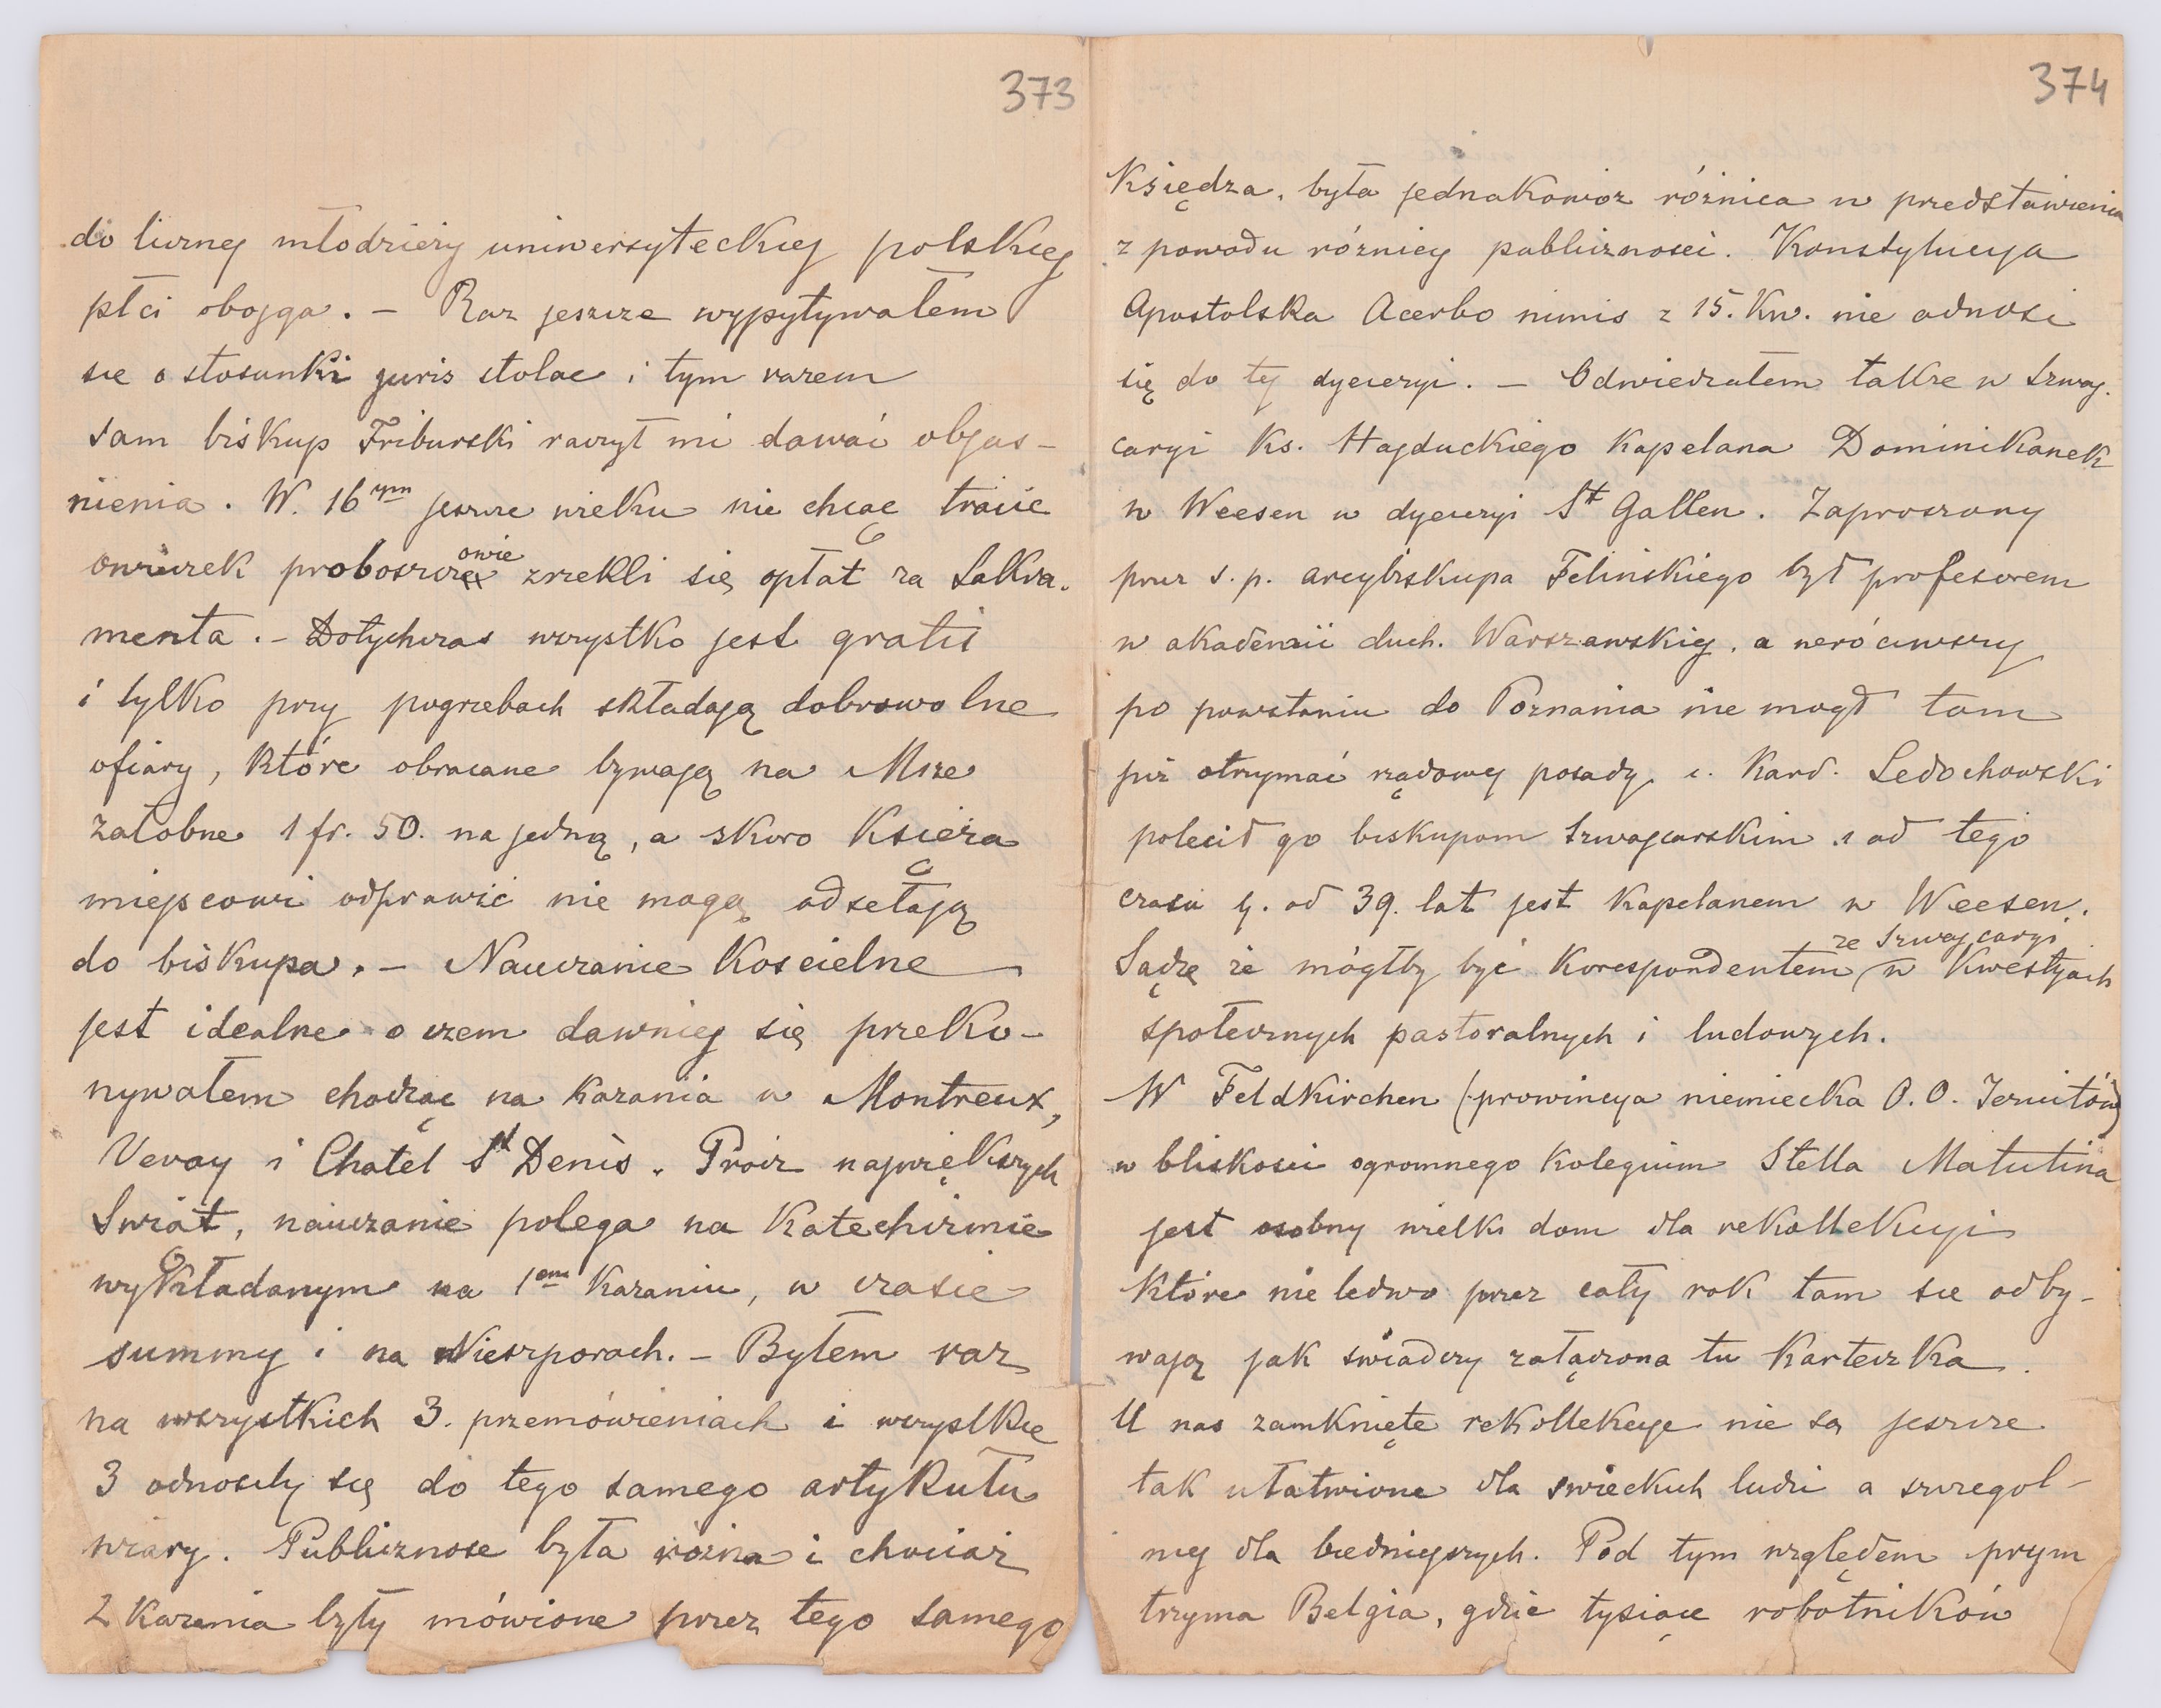 373
do licznej młodzieży uniwersyteckiej polskiej
płci obojga. – Raz jeszcze wypytywałem
się o stosunki juris stolae i tym razem
sam biskup Friburski raczył mi dawać objaś-
nienia. W. 16ym jeszcze wieku nie chcąc tracić
owieczek proboszczowie zrzekli się opłat za Sakra-
menta. – Dotychczas wszystko jest gratis
i tylko przy pogrzebach składają dobrowolne
ofiary, które obracane bywają na Msze
żałobne 1 fr. 50. na jedną, a skoro Księża
miejscowi odprawić nie mogą odsełają
do biskupa. – Nauczanie Kościelne
jest idealne o czem dawniej się przeko-
nywałem chodząc na kazania w Montreux,
Vevay i Chatel St Denis. Prócz największych
Świąt, nauczanie polega na Katechizmie
wykładanym na 1em kazaniu, w czasie
summy i na Nieszporach. – Byłem raz
na wszystkich 3. przemówieniach i wszystkie
3 odnosiły się do tego samego artykułu
wiary. Publiczność była różna i chociaż
2 kazania były mówione przez tego samego
374
Księdza, była jednakowoż różnica w przedstawieniu
z powodu różnicy publiczności. Konstytucyja
Apostolska Acerbo nimis z 15. Kw. nie odnosi
się do tej dyecezyi. – Odwiedzałem także w Szwaj-
caryi Ks. Hajduckiego Kapelana Dominikanek
w Weesen w dyecezyi St Gallen. Zaproszony
przez ś. p. arcybiskupa Felińskiego był profesorem
w akademii duch. Warszawskiej, a wróciwszy
po powstaniu do Poznania nie mógł tam
już otrzymać rządowej posady. i. Kard. Ledochowski
polecił go biskupom Szwajcarskim. i od tego
czasu tj. od 39. lat jest kapelanem w Weesen.
Sądzę że mógłby być Korespondentem ze Szwajcaryi w Kwestyach
społecznych pastoralnych i ludowych.
W Feldkirchen (prowincya niemiecka O. O. Jezuitów)
w bliskości ogromnego Kolegium Stella Matutina
jest osobny wielki dom dla rekollekcyi
które nie ledwo przez cały rok tam się odby-
wają jak świadczy załączona tu Karteczka.
U nas zamknięte rekollekcye nie są jeszcze
tak ułatwione dla świeckich ludzi a szczegól-
niej dla biedniejszych. Pod tym względem prym
trzyma Belgia, gdzie tysiące robotników